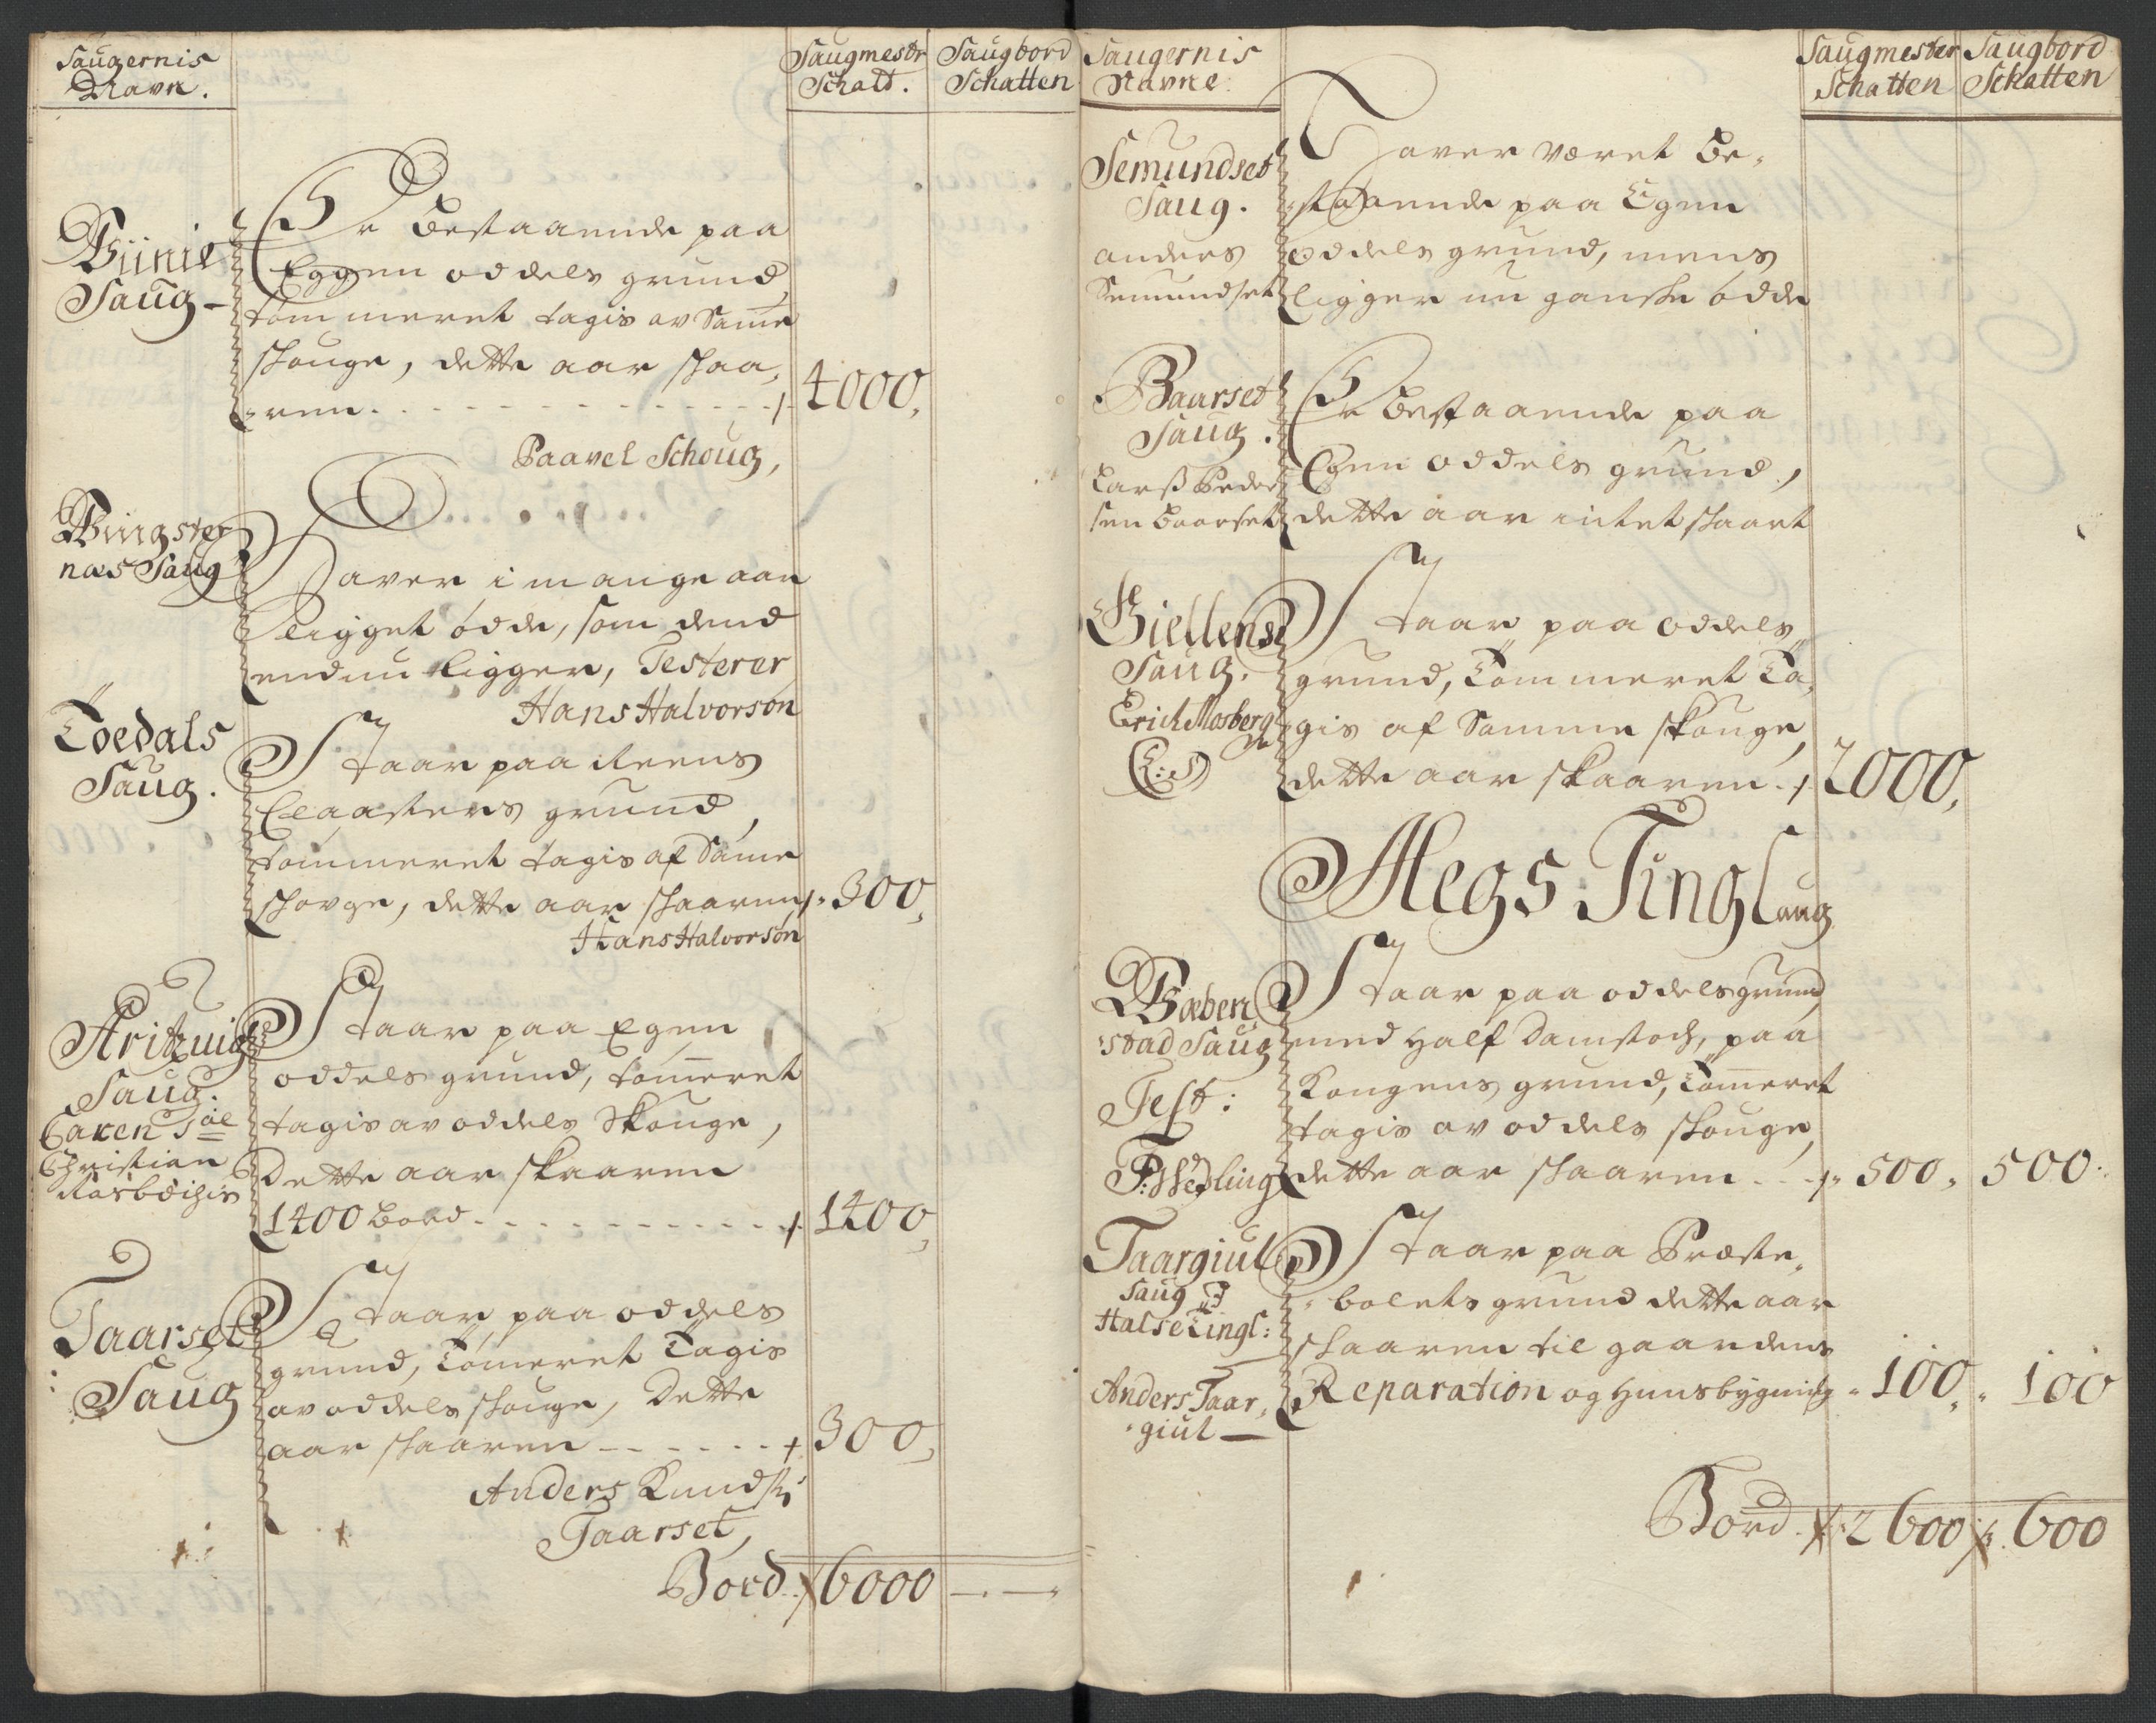 Saugernis
Navn.
Saugmestr
Schatt.
Saugbord
Schatten
Biinie
Saug -
Er bestaaende paa
Eggen oddels grund,
tommeret tagis av Samme
skouge, dette aar skaa,
ren . . . . . . . . . . . . 4000,
Paavel Schoug,
Bingster
næs Saug
Haver i mange aar
ligget ödde, som dend
endnu ligger, Testerer
Hans Halvorson
Toedals
Saug.
Staar paa Reens
Claasters grund,
tommeret tagis af Same
skovge, dette aar skaaren 300,
Hans Halvorson
Aritzuig
Saug.
Caren Sal
Christian
Staar paa Egen
oddels grund, tomeret
tagis av oddels Skouge,
Dette aar skaaren
1400 bord . . . . . . . . . 1400,
Taarset
Saug
Staar paa oddels
grund, Tomeret Tagis
av oddels skouge, Dette
aar skaaren - - . . . . 300,
Anders Knudss:
Taarset,
Bord 6000 —.—
Saugernis
Navne
Saugmester
Schatten
Saugbord
Schatten
Semundset
Saug.
anders
Semundset
Haver været be,
staaende paa Egen
oddels grund, mens
ligger nu ganske ödde
Baarset
Saug.
Larß Peder
sen Baarset
Er bestaaende paa
Egen oddels grund,
dette aar intet skaart
Giellens
Saug.
Erich Mosberg
Staar paa oddels
grund, Tommeret Ta,
gis af Samme skouge,
dette aar skaaren . 2000,
Alegs Tinglaug
Bæben
stad Saug
Test:
F: Wesling
Staar paa oddelsgrund,
med half Damstoch, paa
Kongens grund, Tomeret
tagis av oddels skouge,
dette aar skaaren . . 500, 500.
Taargiul
Saug J
Halse Tingl:
Anders Taar,
giul —
Staar paa Præste,
bolets grund dette aar
skaaren til gaardens
Reparation og Huusbygning 100, 100
Bord. 2600 600